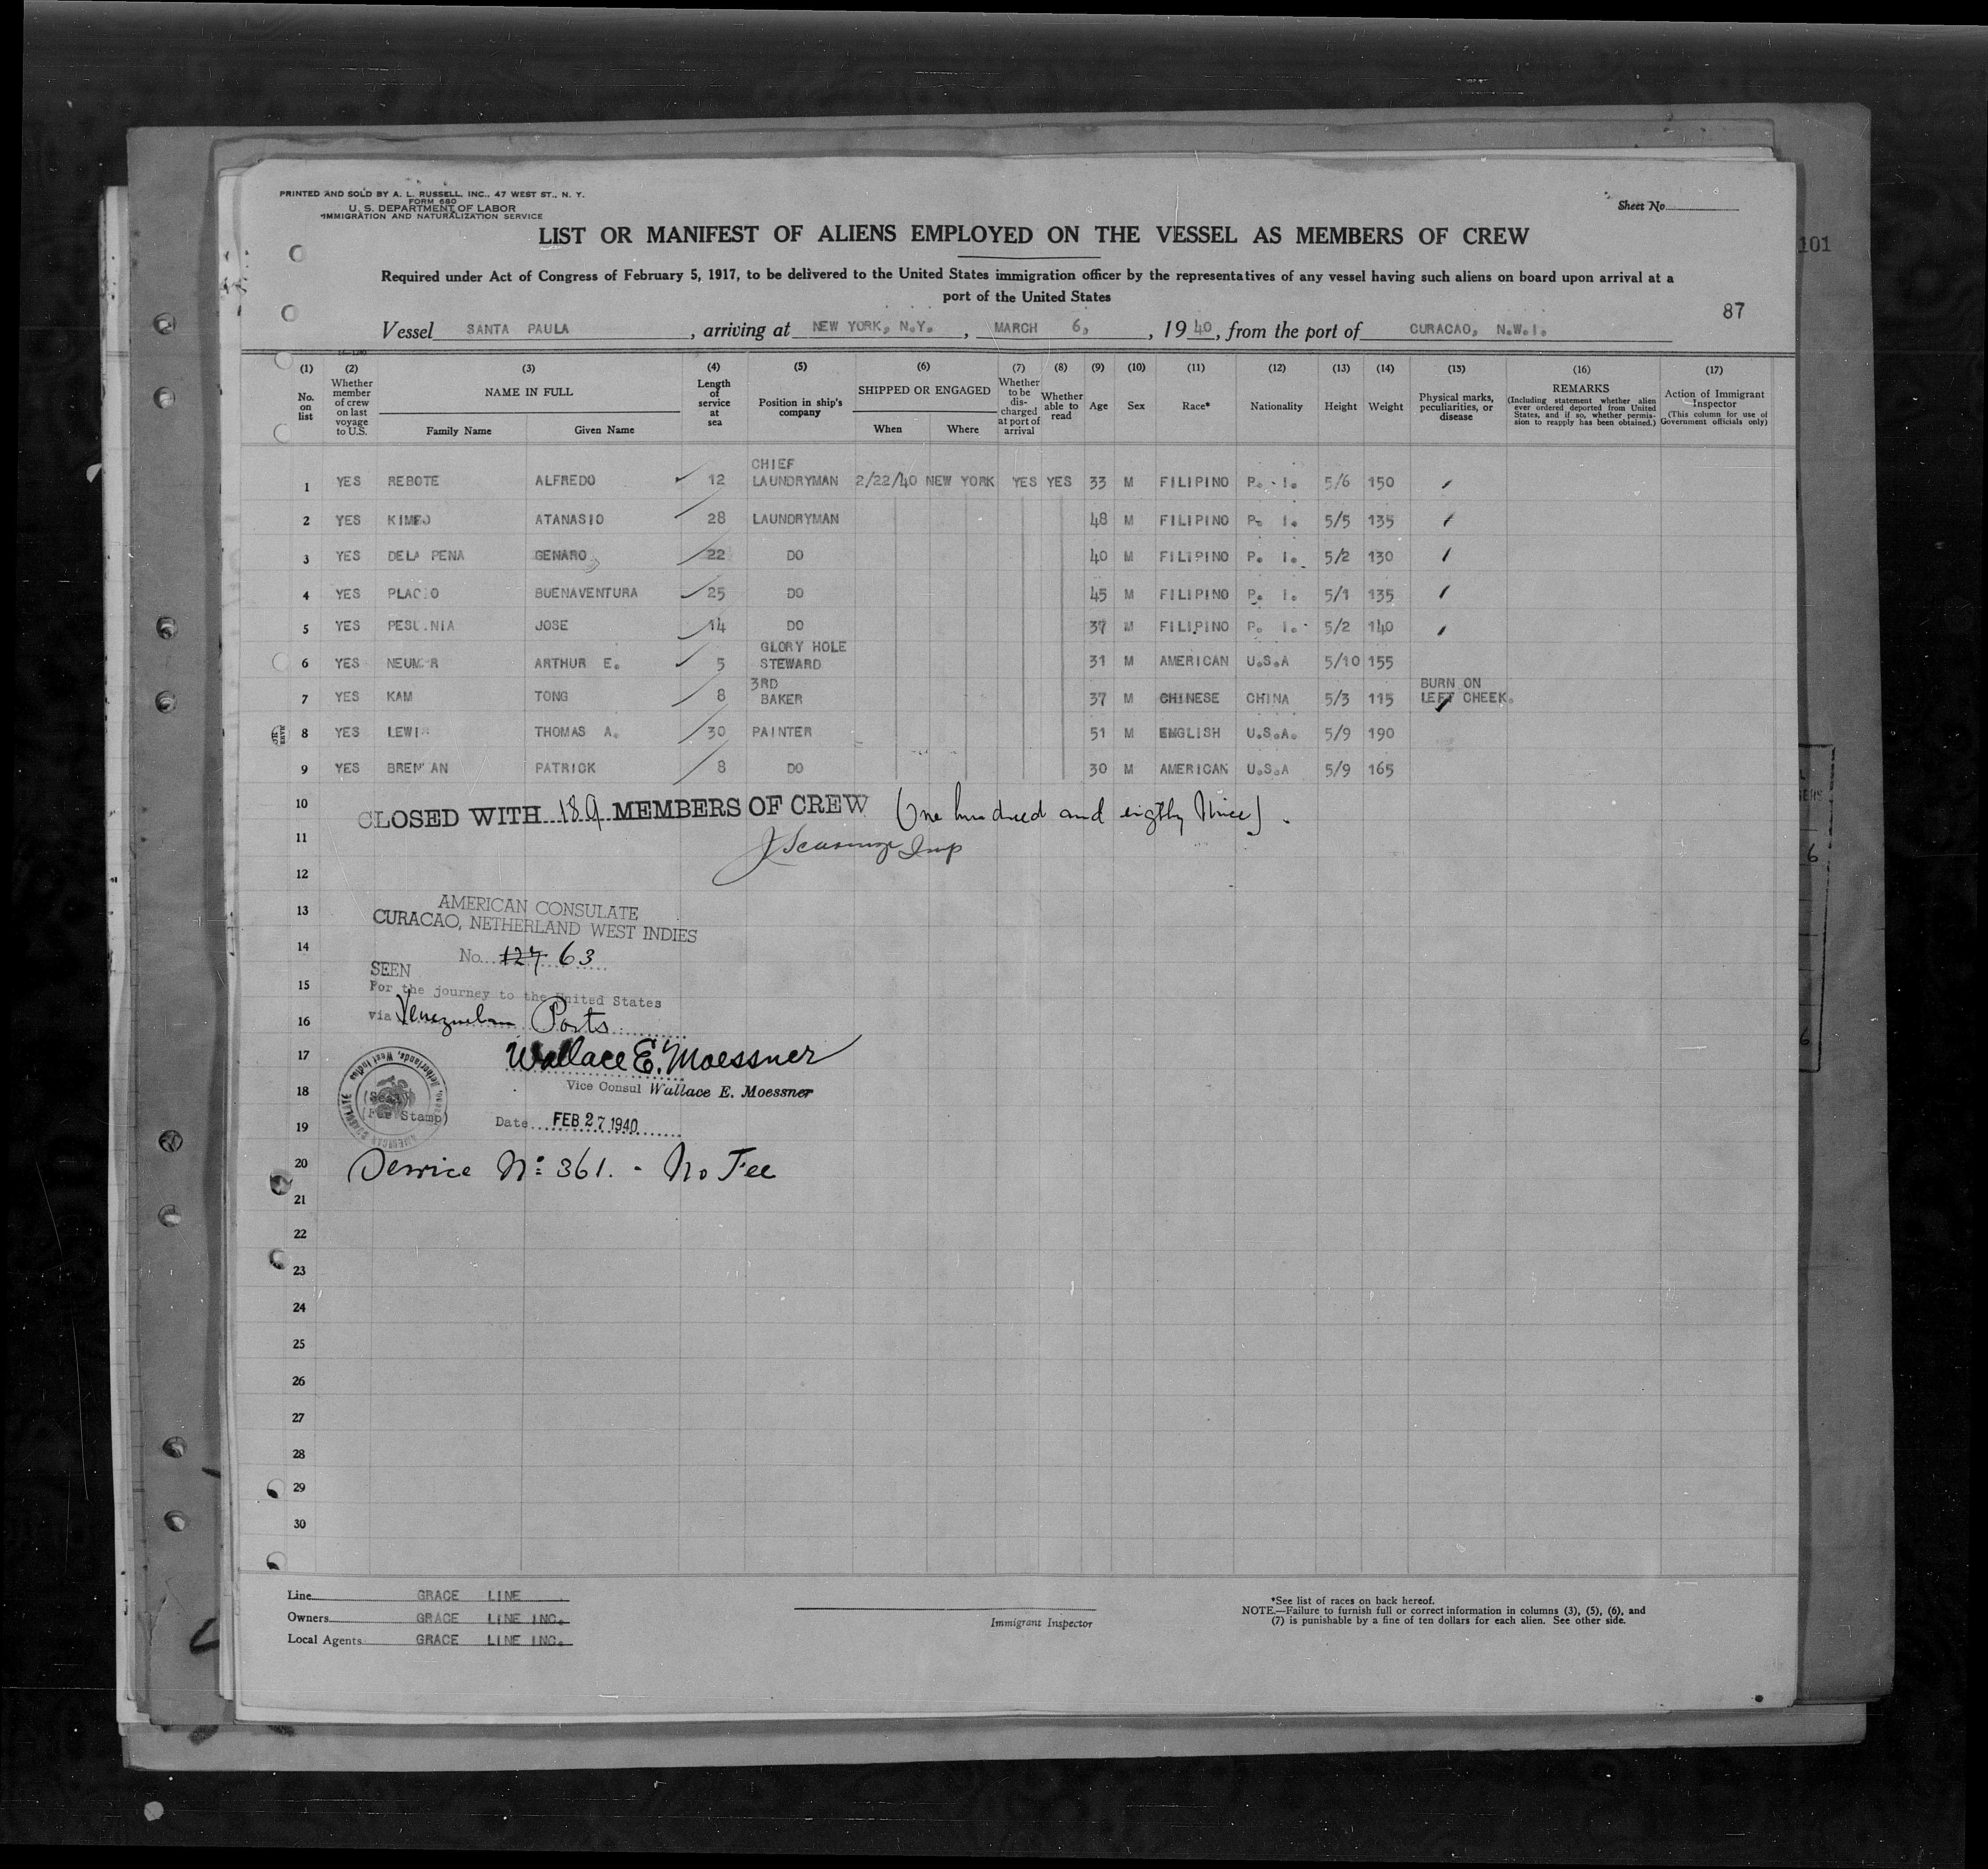 PRINTED AND SOLD BY A. L. RUSSELL, INC., 47 WEST ST., N. Y.
FORM 680
U. S. DEPARTMENT OF LABOR
IMMIGRATION AND NATURALIZATION SERVICE
Sheet No.
LIST OR MANIFEST OF ALIENS EMPLOYED ON THE VESSEL AS MEMBERS OF CREW
101
Required under Act of Congress of February 5, 1917, to be delivered to the United States immigration officer by the representatives of any vessel having such aliens on board upon arrival at a
port of the United States
87
Vessel SANTA PAULA, arriving at NEW YORK, N.Y., MARCH 6, 1940, from the port of CURACAO, N.W.I.
(1) (2) (3) (4) (5) (6) (7) (8) (9) (10) (11) (12) (13) (14) (15) (16) (17)
No. on list
Whether member of crew on last voyage to U.S.
NAME IN FULL
Family Name Given Name
Length of service at sea
Position in ship's company
SHIPPED OR ENGAGED
When Where
Whether to be discharged at port of arrival
Whether able to read
Age Sex Race* Nationality Height Weight
Physical marks, peculiarities, or disease
REMARKS
(Including statement whether alien ever ordered deported from United States, and if so, whether permission to reapply has been obtained.)
Action of Immigrant Inspector
(This column for use of Government officials only)
1 YES REBOTE ALFREDO 12 CHIEF LAUNDRYMAN 2/22/40 NEW YORK YES YES 33 M FILIPINO P. I. 5/6 150
2 YES ATANASIO 28 LAUNDRYMAN 48 M FILIPINO P. I. 5/5 135
3 YES DELA PENA GENARO 22 DO 40 M FILIPINO P. I. 5/2 130
4 YES BUENAVENTURA 25 DO 45 M FILIPINO P. I. 5/1 135
5 YES JOSE 14 DO 37 M FILIPINO P. I. 5/2 140
6 YES ARTHUR E. 5 GLORY HOLE STEWARD 31 M AMERICAN U.S.A 5/10 155
7 YES KAM TONG 8 3RD BAKER 37 M CHINESE CHINA 5/3 115 BURN ON LEFT CHEEK.
8 YES LEWIS THOMAS A. 30 PAINTER 51 M ENGLISH U.S.A. 5/9 190
9 YES BRENNAN PATRICK 8 DO 30 M AMERICAN U.S.A 5/9 165
10
CLOSED WITH 189 MEMBERS OF CREW (One hundred and eigthy Nine).
11
12
13
AMERICAN CONSULATE
CURACAO, NETHERLAND WEST INDIES
14
No. 127 63
SEEN
15
For the journey to the United States
16
via Venezuelan Ports
17
Wallace E. Moessner
18
Vice Consul Wallace E. Moessner
(Seal)
(Fee Stamp)
19
Date FEB 27 1940
20
Service No: 361. - No Fee
21
22
23
24
25
26
27
28
29
30
Line GRACE LINE
Owners GRACE LINE INC.
Local Agents GRACE LINE INC.
Immigrant Inspector
*See list of races on back hereof.
NOTE.—Failure to furnish full or correct information in columns (3), (5), (6), and
(7) is punishable by a fine of ten dollars for each alien. See other side.